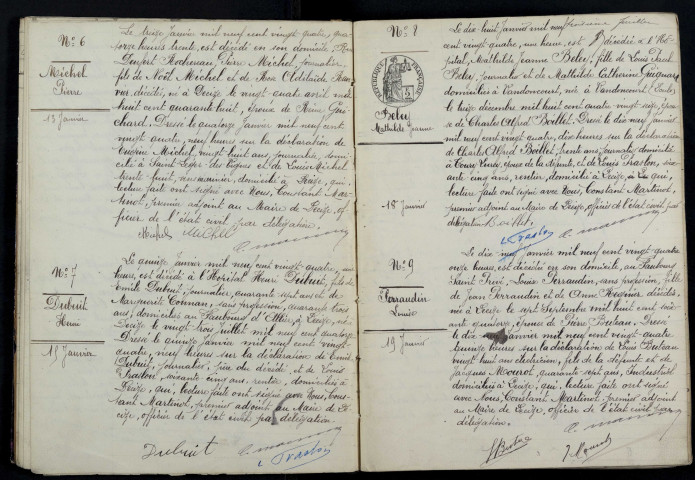 N° 6
Michel
Pierre
13 Janvier
Le treize janvier mil neuf cent vingt quatre, qua-
torze heures trente, est décédé en son domicile, Rue
Denfert Rochereau, Pierre Michel, journalier,
fils de Noël Michel et de Rose Adélaïde
décédés, né à Decize le vingt quatre avril mil
huit cent quarante huit, époux de Reine Gui-
chard. Dressé le quatorze janvier mil neuf cent
vingt quatre, neuf heures sur la déclaration de
Michel, vingt huit ans, journalier, domi-
cilié à Saint Léger des Vignes et de Louis Michel
trente huit, domicilié à Decize, qui,
lecture faite ont signé avec Nous, Constant Mar-
tinot, premier adjoint au Maire de Decize, of-
ficier de l'état civil par délégation.
Michel
N° 7
Dubuit
Henri
15 Janvier
Le quinze janvier mil neuf cent vingt quatre,
heures, est décédé à l'Hôpital Henri Dubuit, fils de
Emile Dubuit, journalier, quarante sept ans et de
Marguerite sans profession, quarante trois
ans, domiciliés au Faubourg d'Allier, à Decize, né à
Decize le vingt trois juillet mil neuf cent quatorze
Dressé le quinze janvier mil neuf cent vingt
quatre, neuf heures sur la déclaration de Emile
Dubuit, journalier, père du décédé, et de Louis
soixante cinq ans, rentier, domiciliés à
Decize, qui, lecture faite ont signé avec Nous, Cons-
tant Martinot, premier adjoint au Maire de De-
cize, officier de l'état civil par délégation.
Dubuit
N° 8
RÉPUBLIQUE FRANÇAISE
Mathilde Jeanne
18 Janvier
Le dix huit janvier mil neuf
cent vingt quatre, une heure, est décédée à l'Hô-
pital, Mathilde Jeanne fille de Louis
journalier et de Mathilde Catherine
domiciliés à Vandoncourt, née à Vandoncourt (Doubs)
le seize décembre mil huit cent quatre vingt seize, épou-
se de Charles Alfred Boillet. Dressé le dix neuf janvier
mil neuf cent vingt quatre, dix heures sur la déclaration
de Charles Alfred Boillet, trente ans, journalier, domicilié
à époux de la défunte, et de Louis soixan-
te cinq ans, rentier, domicilié à Decize, qui
lecture faite ont signé avec Nous, Constant Martinot,
premier adjoint au Maire de Decize, officier de l'état civil par
délégation.
Boillet
N° 9
Perraudin
Louise
19 Janvier
Le dix neuf janvier mil neuf cent vingt quatre
onze heures, est décédée en son domicile, au Faubourg
Saint Privé, Louise Perraudin, sans profession, fille
de Jean Perraudin et de Anne Regnier, décédés,
née à Decize le sept Septembre mil huit cent soi-
xante quatorze, épouse de Pierre Buteau. Dressé
le dix neuf janvier mil neuf cent vingt quatre
heures sur la déclaration de Louis Buteau
vingt huit ans, électricien, fils de la défunte et de
Jacques Mourot, quarante sept ans, Industriel
domiciliés à Decize, qui, lecture faite ont signé
avec Nous, Constant Martinot, premier adjoint
au Maire de Decize, officier de l'état civil par
délégation.